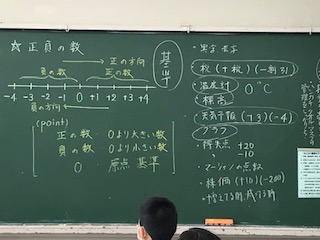 ☆正負の数
→ 正の方向
負の数 正の数
-4 -3 -2 -1 0 +1 +2 +3 +4
負の方向 ←
基準
(point)
正の数 0より大きい数
負の数 0より小さい数
0 原点 基準
・温度計 0℃
・標高
・天気予報 (+3)(-4)
グラフ
・得失点 +20
-10
・マージャンの点数
・株価 (+10)(-200)
・増える時、減る時